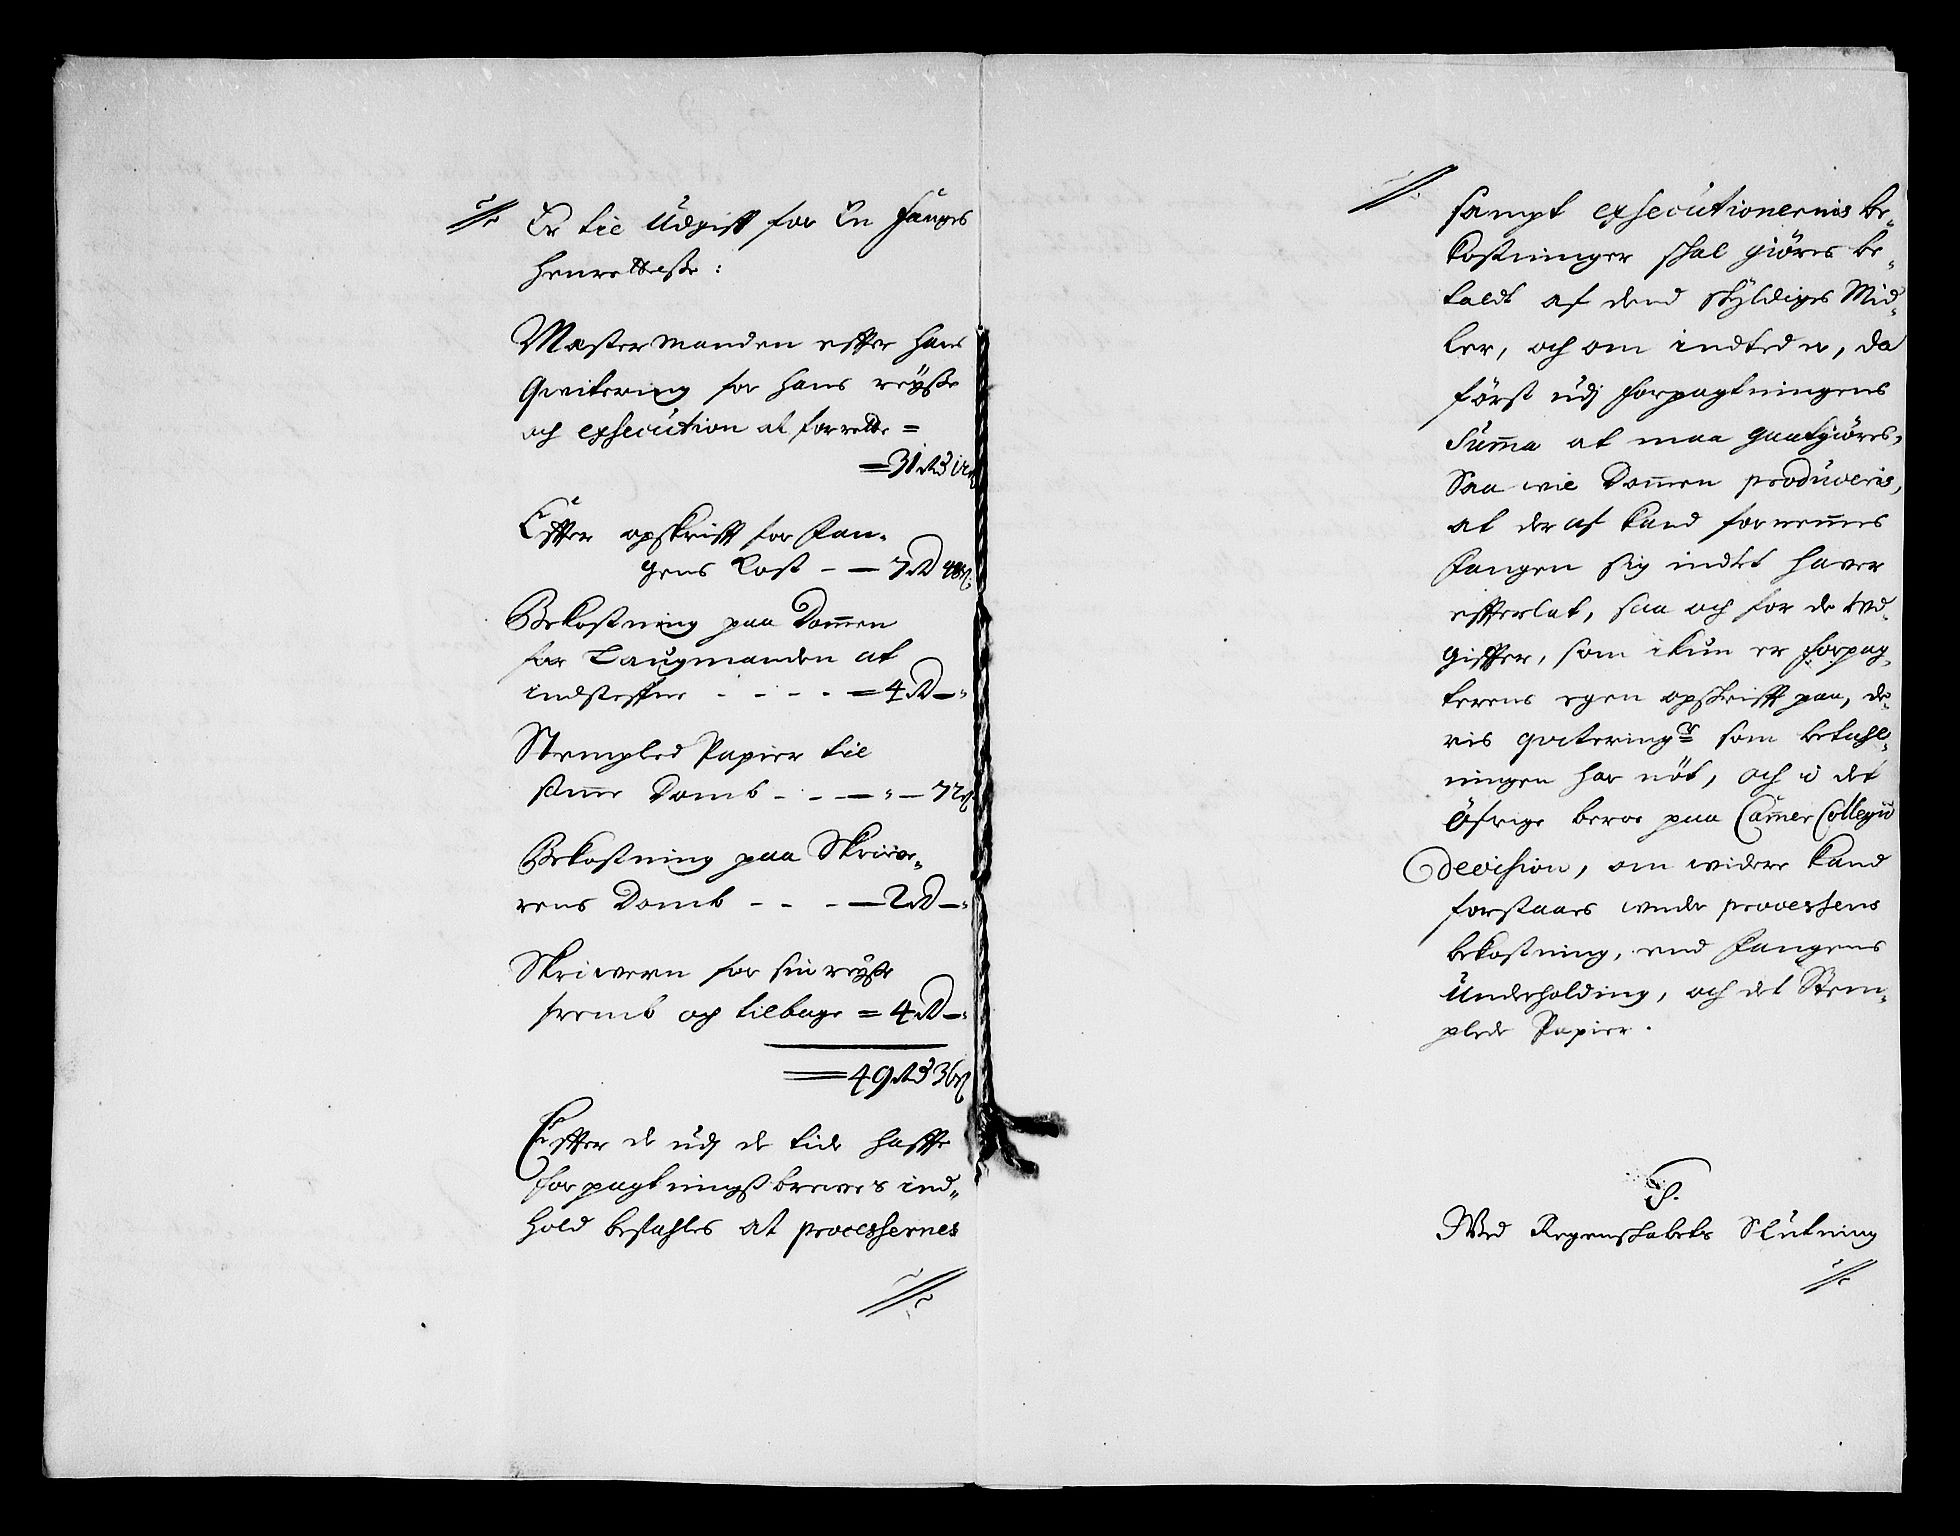 Er til Udgift for En Fanges
Henrettelße:
Mæstermanden effter hans
Qvitering for hans reÿße
och exsecution at forrette =
= 31 Rd 3
Effter opskrifft for Fan-
gens Kost - - 7 Rd 48 s
Bekostning paa Dommen
for Laugmanden at
indsteffne - - - - = 4 Rd - "
Stemplet Papier til
samme Domb - - - " - 72 s
Bekostning paa Skriffve-
rens Domb - - - 2 Rd - "
Skriweren for sin reÿße
fremb og tilbage = 4 Rd - "
= 49 Rd 3 36 s
Effter de udj de tide haffte
forpagtningsbrewes ind-
hold befahles at processernes
sampt exsecutionernis be-
kostninger skal giöres be-
taldt af dend skÿldiges Mid-
ler, och om indted er, da
först udj forpagtningens
Summa at maa gaatgiöres,
Saa wel Dommen produceris,
at der af kand fornemmes
Fangen sig indtet haver
effterlat, saa och for de Ud-
giffter, som ikun er Forpag-
terens egen opskrifft paa, de-
ris qvitering som betahl-
ningen har nöt, och i det
öfrige beror paa Cammer Collegii
Decision, om widere kand
forstaaes under processens
bekostning, end Fangens
Underholding, och det Stem-
plede Papier.
P.
Wed Regenskabets Slutning